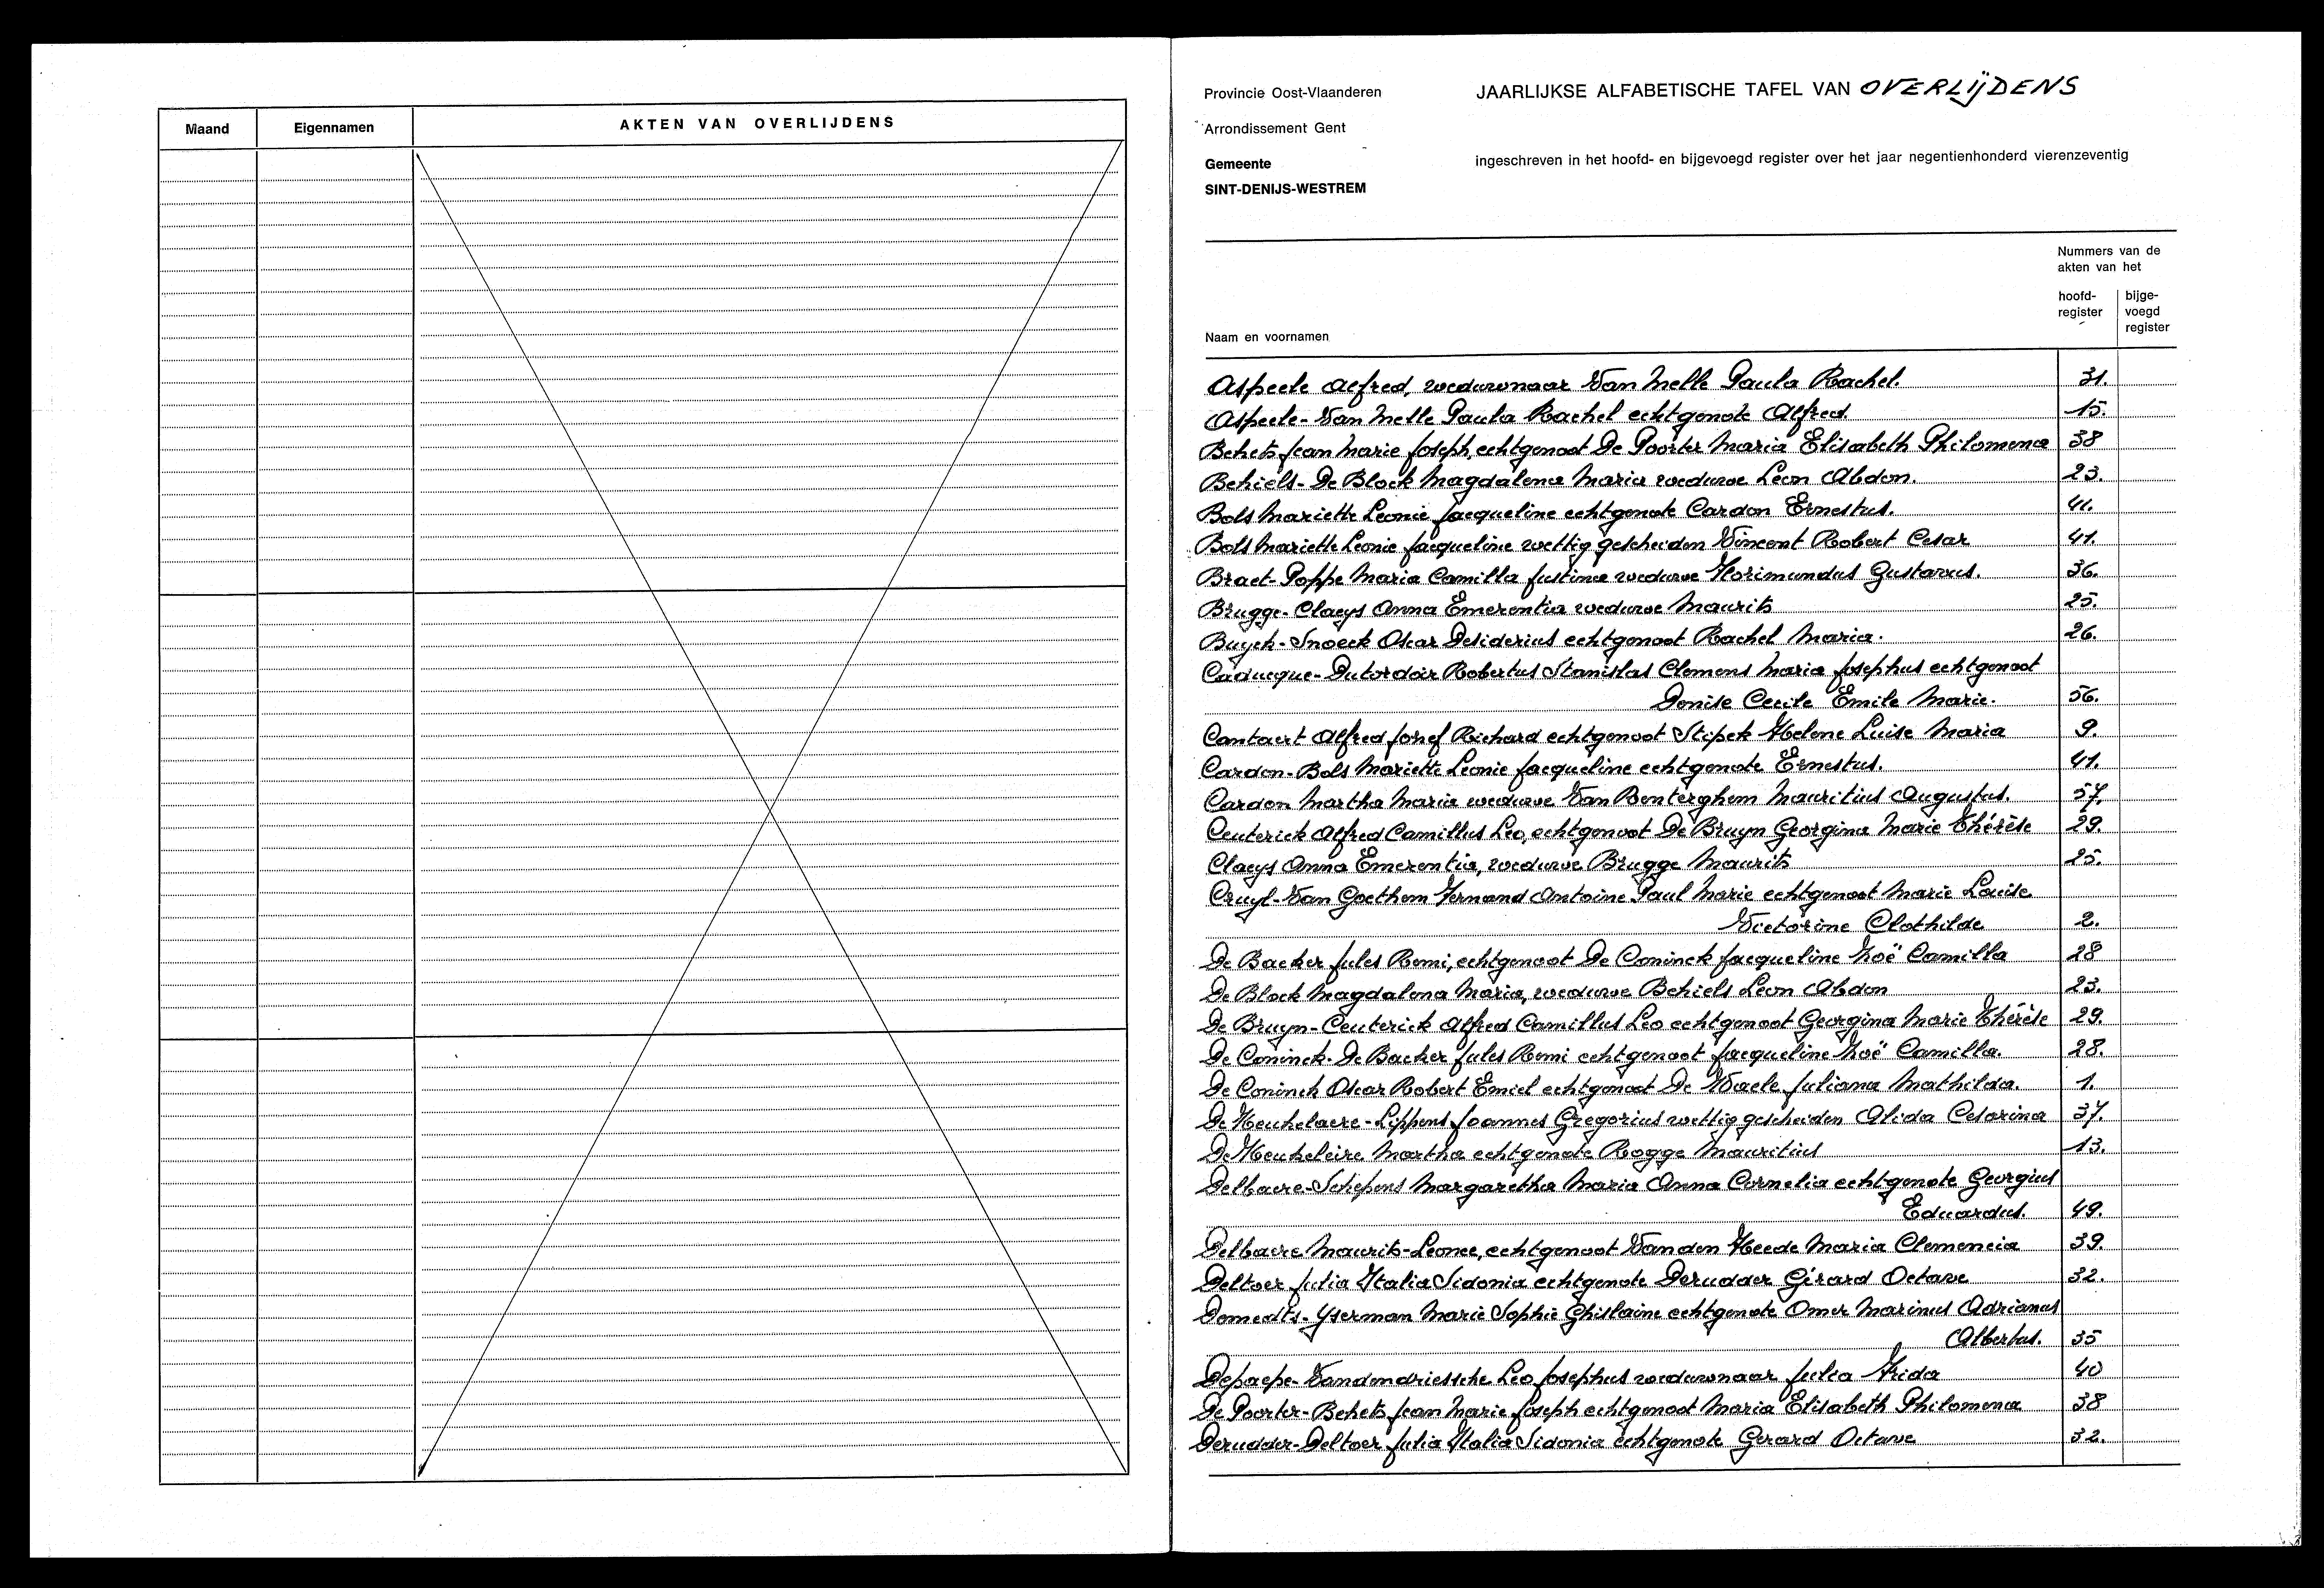 Maand
Eigennamen
AKTEN VAN OVERLIJDENS
Provincie Oost-Vlaanderen
Arrondissement Gent
Gemeente
SINT-DENIJS-WESTREM
JAARLIJKSE ALFABETISCHE TAFEL VAN OVERLIJDENS
ingeschreven in het hoofd- en bijgevoegd register over het jaar negentienhonderd vierenzeventig
Nummers van de
akten van het
hoofd-
register
bijge-
voegd
register
Naam en voornamen
Aspeele Alfred, weduwnaar Van Melle Paula Rachel. 31.
Aspeele-Van Melle Paula Rachel echtgenote Alfred. 15.
Behets Jean Marie Joseph, echtgenoot De Poorter Maria Elisabeth Philomena 38
Behiels-De Block Magdalena Maria weduwe Leon Abdon. 23.
Bols Mariette Leonie Jacqueline echtgenote Cardon Ernestus. 41.
Bols Mariette Leonie Jacqueline wettig gescheiden Vincent Robert Cesar 41.
Braet-Poppe Maria Camilla Justina weduwe Florimundus Gustavus. 36.
Brugge-Claeys Anna Emerentia weduwe Maurits 25.
Buyck-Snoeck Oscar Desiderius echtgenoot Rachel Maria. 26.
Caducque-Dutordoir Robertus Stanislas Clemens Maria Josephus echtgenoot
Denise Cecile Emile Marie. 56.
Cantaert Alfred Josef Richard echtgenoot Stipek Helene Luise Maria 9.
Cardon-Bols Mariette Leonie Jacqueline echtgenote Ernestus. 41.
Cardon Martha Maria weduwe Van Bonterghem Mauritius Augustus. 57.
Ceuterick Alfred Camillus Leo, echtgenoot De Bruyn Georgina Marie Thérèse 29.
Claeys Anna Emerentia, weduwe Brugge Maurits 25.
Cruyl-Van Goethem Fernand Antoine Paul Marie echtgenoot Marie Louise
Victorine Clothilde 2.
De Backer Jules Remi, echtgenoot De Coninck Jacqueline Zoë Camilla 28
De Block Magdalena Maria, weduwe Behiels Leon Abdon 23.
De Bruyn-Ceuterick Alfred Camillus Leo echtgenoot Georgina Marie Thérèse 29.
De Coninck-De Backer Jules Remi echtgenoot Jacqueline Zoë Camilla. 28.
De Coninck Oscar Robert Emiel echtgenoot De Waele Juliana Mathilda. 1.
De Heukelaere-Lippens Joannes Gregorius wettig gescheiden Alida Cesarina 37.
De Heukeleire Martha echtgenote Rogge Mauritius 13.
Delbaere-Schepens Margaretha Maria Anna Cornelia echtgenote Georgius
Eduardus. 49.
Delbaere Maurits-Leonce, echtgenoot Vanden Heede Maria Clemencia 39.
Deltoer Julia Italia Sidonia echtgenote Derudder Gérard Octave 32.
Demedts-Yserman Marie Sophie Ghislaine echtgenote Omer Marinus Adrianus
Albertus. 35
Depaepe-Vandendriessche Leo Josephus weduwnaar Julia Frida 40
De Poorter-Behets Jean Marie Joseph echtgenoot Maria Elisabeth Philomena 38
Derudder-Deltoer Julia Italia Sidonia echtgenote Gerard Octave 32.